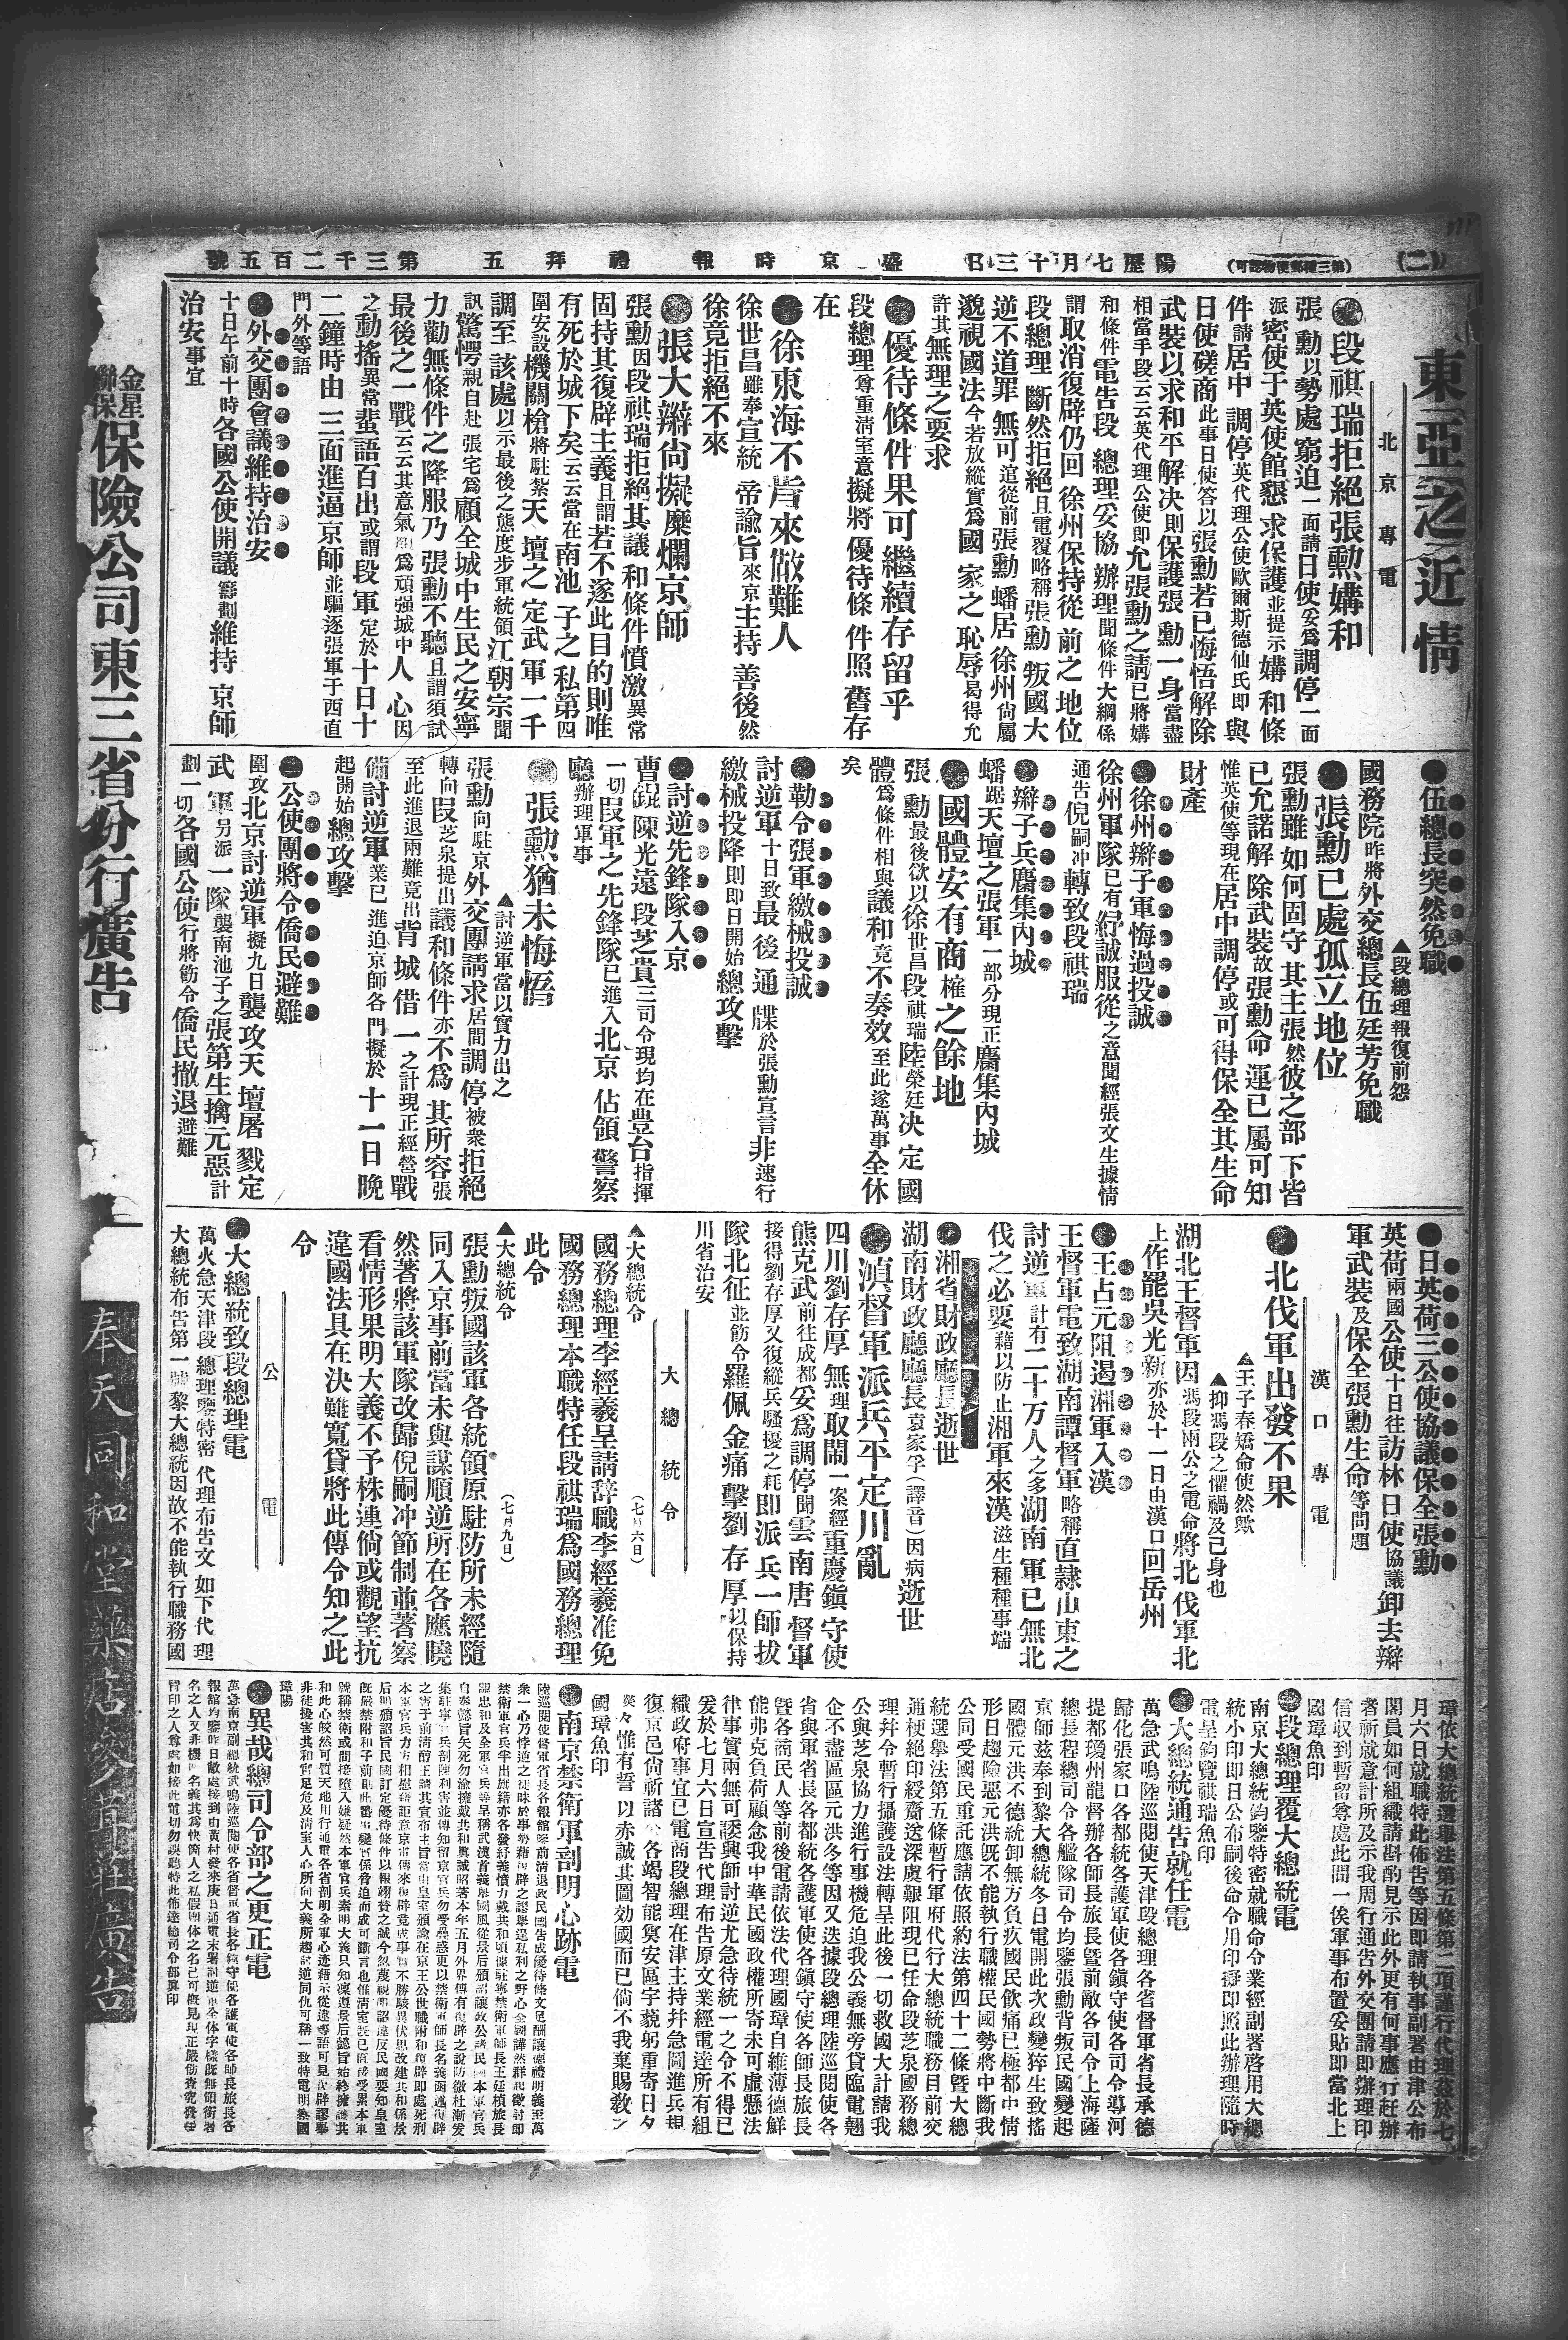 (二)
(第三種郵便物認可)
陽歷七月十三日
盛京時報
禮拜五
第三千二百五號
東亞之近情
北京專電
●段祺瑞拒絕張勲媾和
張勳以勢處窮迫一面請日使妥爲調停一面
派密使于英使館懇求保護並提示媾和條
件請居中調停英代理公使歐爾斯德仙氏即與
日使磋商此事日使答以張勳若已悔悟解除
武裝以求和平解决則保護張勳一身當盡
相當手段云云英代理公使即允張勳之請已將媾
和條件電告段總理妥協辦理聞條件大綱係
謂取消復辟仍回徐州保持從前之地位
段總理斷然拒絕且電覆略稱張勳叛國大
逆不道罪無可逭從前張勳蟠居徐州尙屬
邈視國法今若放縱實爲國家之恥辱曷得允
許其無理之要求
●優待條件果可繼續存留乎
段總理尊重淸室意擬將優待條件照舊存
在
●徐東海不肯來做難人
徐世昌雖奉宣統帝諭旨來京主持善後然
徐竟拒絕不來
●張大辮尙擬糜爛京師
張勳因段祺瑞拒絕其議和條件憤激異常
固持其復辟主義且謂若不遂此目的則唯
有死於城下矣云云當在南池子之私第四
圍安設機關槍將駐紮天壇之定武軍一千
調至該處以示最後之態度步軍統領江朝宗聞
訊驚愕親自赴張宅爲顧全城中生民之安寧
力勸無條件之降服乃張勳不聽且謂須試
最後之一戰云云其意氣爲頑强城中人心因
之動搖異常蜚語百出或謂段軍定於十日十
二鐘時由三面進逼京師並驅逐張軍于西直
門外等語
●外交團會議維持治安
十日午前十時各國公使開議籌劃維持京師
治安事宜
●伍總長突然免職
▲段總理報復前怨
國務院昨將外交總長伍廷芳免職
●張勳已處孤立地位
張勳雖如何固守其主張然彼之部下皆
已允諾解除武裝故張勳命運已屬可知
惟英使等現在居中調停或可得保全其生命
財產
●徐州辮子軍悔過投誠
徐州軍隊已有紓誠服從之意聞經張文生據情
通告倪嗣冲轉致段祺瑞
●辮子兵麕集內城
蟠踞天壇之張軍一部分現正麕集內城
●國體安有商榷之餘地
張勳最後欲以徐世昌段祺瑞陸榮廷决定國
體爲條件相與議和竟不奏效至此遂萬事全休
矣
●勒令張軍繳械投誠
討逆軍十日致最後通牒於張勳宣言非速行
繳械投降則即日開始總攻擊
●討逆先鋒隊入京
曹錕陳光遠段芝貴三司令現均在豊台指揮
一切段軍之先鋒隊已進入北京佔領警察
廳辦理軍事
●張勲猶未悔悟
▲討逆軍當以實力出之
張勳向駐京外交團請求居間調停被衆拒絕
轉向段芝泉提出議和條件亦不爲其所容張
至此進退兩難竟出背城借一之計現正經營戰
備討逆軍業已進迫京師各門擬於十一日晚
起開始總攻擊
●公使團將令僑民避難
圍攻北京討逆軍擬九日襲攻天壇屠戮定
武軍另派一隊襲南池子之張第生擒元惡計
劃一切各國公使行將飭令僑民撤退避難
●日英荷三公使協議保全張勳
英荷兩國公使十日往訪林日使協議卸去辮
軍武裝及保全張勳生命等問題
漢口專電
●北伐軍出發不果
▲王子春矯命使然歟
▲抑馮段之懼禍及己身也
湖北王督軍因馮段兩公之電命將北伐軍北
上作罷吳光新亦於十一日由漢口回岳州
●王占元阻遏湘軍入漢
王督軍電致湖南譚督軍略稱直隸山東之
討逆軍計有二十万人之多湖南軍已無北
伐之必要藉以防止湘軍來漢滋生種種事端
●湘省財政廳長逝世
湖南財政廳廳長袁家孚(譯音)因病逝世
●滇督軍派兵平定川亂
四川劉存厚無理取閙一案經重慶鎭守使
熊克武前往成都妥爲調停聞雲南唐督軍
接得劉存厚又復縱兵騷擾之耗即派兵一師拔
隊北征並飭令羅佩金痛擊劉存厚以保持
川省治安
大總統令
▲大總統令(七月六日)
國務總理李經羲呈請辭職李經羲准免
國務總理本職特任段祺瑞爲國務總理
此令
▲大總統令(七月九日)
張勳叛國該軍各統領原駐防所未經隨
同入京事前當未與謀順逆所在各應曉
然著將該軍隊改歸倪嗣冲節制並著察
看情形果明大義不予株連倘或觀望抗
違國法具在決難寬貸將此傳令知之此
令
公電
●大總統致段總理電
萬火急天津段總理鑒特密代理布告文如下代理
大總統布告第一號黎大總統因故不能執行職務國
璋依大總統選舉法第五條第二項謹行代理茲於七
月六日就職特此佈告等因即請執事副署由津公布
閣員如何組織請斟酌見示此外更有何事應行赶辦
者祈就意計所及示我周行通告外交團請即辦理印
信收到暫留尊處此間一俟軍事布置安貼即當北上
國璋魚印
●段總理覆大總統電
南京大總統鈞鑒特密就職命令業經副署啓用大總
統小印即日公布嗣後命令用印擬即照此辦理隨時
電呈鈞覽祺瑞魚印
●大總統通告就任電
萬急武鳴陸巡閱使天津段總理各省督軍省長承德
歸化張家口各都統各護軍使各鎭守使各司令導河
提都瓊州龍督辦各師長旅長曁前敵各司令上海薩
總長程總司令各艦隊司令均鑒張勳背叛民國變起
京師茲奉到黎大總統冬日電開此次政變猝生致搖
國體元洪不德統卸無方負疚國民飲痛已極都中情
形日趨險惡元洪旣不能執行職權民國勢將中斷我
公同受國民重託應請依照約法第四十二條曁大總
統選舉法第五條暫行軍府代行大總統職務目前交
通梗絕印綬齎送深虞艱阻現已任命段芝泉國務總
理幷令暫行攝護設法轉呈此後一切救國大計請我
公與芝泉協力進行事機危迫我公義無旁貸臨電翹
企不盡區區元洪冬等因又迭據段總理陸巡閱使各
省與軍省長各都統各護軍使各鎭守使各師長旅長
曁各商民人等前後電請依法代理國璋自維薄德鮮
能弗克負荷顧念我中華民國政權所寄未可虛懸法
律事實兩無可諉興師討逆尤急待統一之令不得已
爰於七月六日宣告代理布告原文業經電達所有組
織政府事宜已電商段總理在津主持幷急圖進兵規
復京邑尙祈諸公各竭智能奠安區宇藐躬重寄日夕
兢惟有誓以赤誠共圖効國而已倘不我棄賜敎之
國璋魚印
●南京禁衛軍剖明心跡電
●異哉總司令部之更正電
金星聯保保險公司東三省分行廣告
奉天同和堂藥店參茸莊廣告